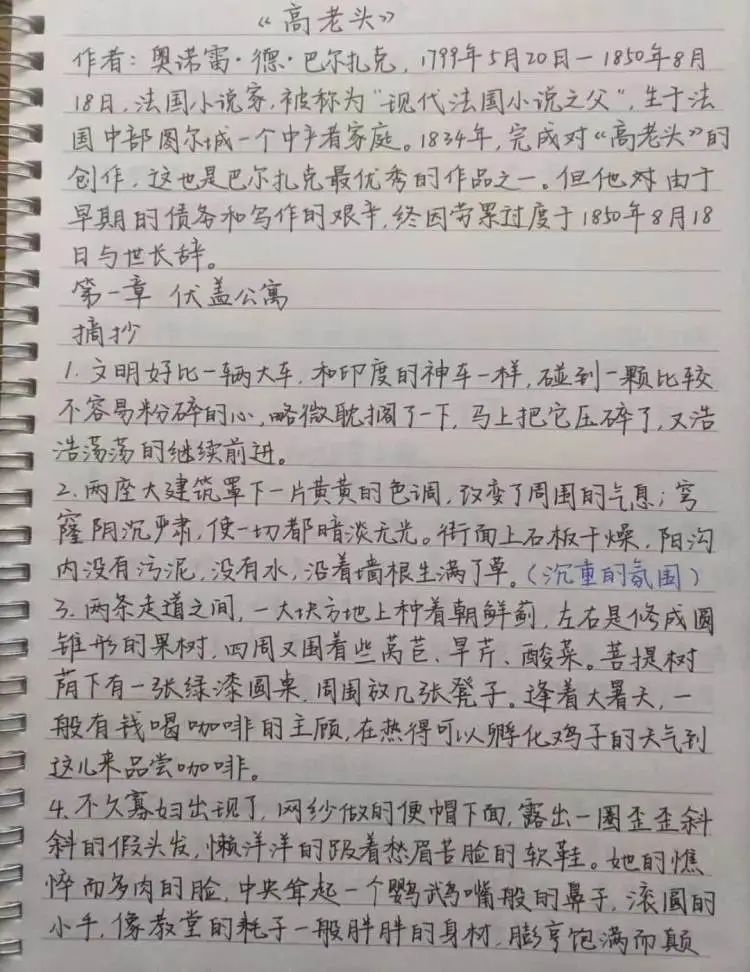 《高老头》
作者：奥诺雷·德·巴尔扎克，1799年5月20日—1850年8月
18日，法国小说家，被称为“现代法国小说之父”，生于法
国中部图尔城一个中产者家庭。1834年，完成对《高老头》的
创作，这也是巴尔扎克最优秀的作品之一。但他对由于
早期的债务和写作的艰辛，终因劳累过度于1850年8月18
日与世长辞。
第一章 伏盖公寓
摘抄
1.文明好比一辆大车，和印度的神车一样，碰到一颗比较
不容易粉碎的心，略微耽搁了一下，马上把它压碎了，又浩
浩荡荡的继续前进。
2.两座大建筑罩下一片黄黄的色调，改变了周围的气息；穹
窿阴沉严肃，使一切都暗淡无光。街面上石板干燥，阳沟
内没有污泥，没有水，沿着墙根生满了草。（沉重的氛围）
3.两条走道之间，一大块方地上种着朝鲜蓟，左右是修成圆
锥形的果树，四周又围着些莴苣、旱芹、酸菜。菩提树
荫下有一张绿漆圆桌，周围放几张凳子。逢着大暑天，一
般有钱喝咖啡的主顾，在热得可以孵化鸡子的天气到
这儿来品尝咖啡。
4.不久寡妇出现了，网纱做的便帽下面，露出一圈歪歪斜
斜的假头发，懒洋洋的趿着愁眉苦脸的软鞋。她的憔
悴而多肉的脸，中央耸起一个鹦鹉嘴般的鼻子，滚圆的
小手，像教堂的耗子一般胖胖的身材，膨亨饱满而颠